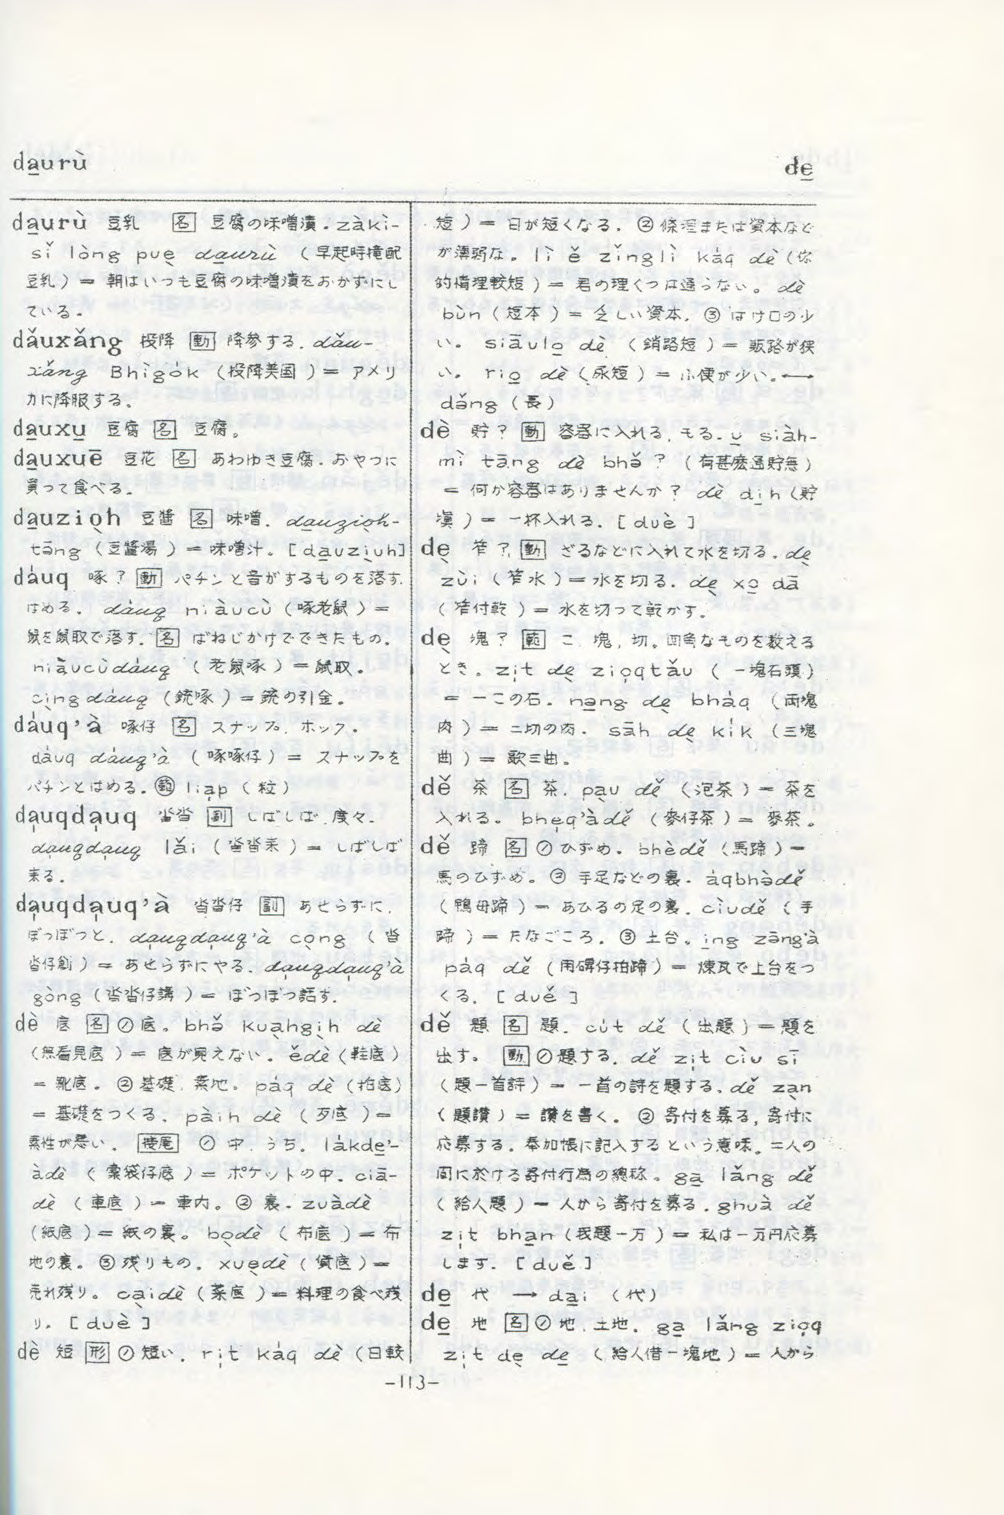 da̲urù
de̲
da̲urù 豆乳 [名] 豆腐の味噌漬. zàkì-
sǐ lòng pue̲ da̲urù (早起時攏配
豆乳) = 朝はいつも豆腐の味噌漬をおかずにし
ている。
dǎuxǎng 投降 [動] 降参する. dǎu-
xǎng Bhìgok (投降美国) = アメリ
カに降服する.
da̲uxu̲ 豆腐 [名] 豆腐。
da̲uxuē 豆花 [名] あわゆき豆腐. おやつに
買って食べる。
da̲uzioh 豆醬 [名] 味噌. da̲uzioh-
tāng (豆醬湯) = 味噌汁. [da̲uziuh]
dáuq 啄? [動] パチンと音がするものを落す.
はめる. dáuq niàucù (啄老鼠) =
鼠を鼠取で落す. [名] ばねじかけでできたもの.
niàucùdáuq (老鼠啄) = 鼠取.
cìngdáuq (銃啄) = 銃の引金.
dáuq'à 啄仔 [名] スナップ. ホック.
dáuq dáuq'à (啄啄仔) = スナップを
パチンとはめる. liap (粒)
dauqdauq 沓沓 [副] しばしば. 度々.
dauqdauq lǎi (沓沓来) = しばしば
来る.
dauqdauq'à 沓沓仔 [副] あせらずに.
ぼつぼつと. dauqdauq'à cong (沓
沓仔創) = あせらずにやる. dauqdauq'à
gòng (沓沓仔講) = ぼつぼつ話す.
dè 底 [名] ①底. bhǎ kuahgih dè
(無看見底) = 底が見えない. ědè (鞋底)
= 靴底. ②基礎. 素地. páq dè (拍底)
= 基礎をつくる. pàih dè (歹底) =
素性が悪い. [接尾] ①中. うち. lakde̲'-
àdè (橐袋仔底) = ポケットの中. ciā-
dè (車底) = 車内. ②裏. zuàdè
(紙底) = 紙の裏. bòdè (布底) = 布
地の裏. ③残りもの. xuèdè (貨底) =
売れ残り. càidè (菜底) = 料理の食べ残
り. [duè]
dè 短 [形] ①短い. rit káq dè (日較
短) = 日が短くなる. ②條理または資本など
が薄弱な. lì ě zǐnglì káq dè (你
的情理較短) = 君の理くつは通らない. dè
bùn (短本) = 乏しい資本. ③はけ口の少
い. siāulo̲ dè (銷路短) = 販路が狭
い. rio̲ dè (尿短) = 小便が少い. →
dǎng (長)
dè 貯? [動] 容器に入れる. もる. u̲ siàh-
mì tāng dè bhǎ? (有甚麼通貯無)
= 何か容器はありませんか? dè dih (貯
) = 一杯入れる. [duè]
de̲ 笮? [動] ざるなどに入れて水を切る. de̲
zùi (笮水) = 水を切る. de̲ xo̲ dā
(笮付乾) = 水を切って乾かす.
de̲ 塊? [範] こ. 塊. 切. 四角なものを数える
とき. zit de̲ zioqtǎu (一塊石頭)
= 一この石. nn̲g de̲ bháq (両塊
肉) = 二切の肉. sāh de̲ kík (三塊
曲) = 歌三曲.
dě 茶 [名] 茶. pàu dě (泡茶) = 茶を
入れる. bheq'àdě (麥仔茶) = 麥茶.
dě 蹄 [名] ①ひずめ. bhèdě (馬蹄) =
馬のひずめ. ②手足などの裏. áqbhàdě
(鴨母蹄) = あひるの足の裏. cìudě (手
蹄) = たなごころ. ③土台. ing zāng'à
páq dě (用磚仔拍蹄) = 煉瓦で土台をつ
くる. [duě]
dě 題 [名] 題. cút dě (出題) = 題を
出す. [動] ①題する. dě zit cìu sī
(題一首詩) = 一首の詩を題する. dě zan
(題讃) = 讃を書く. ②寄付を募る. 寄付に
応募する. 奉加帳に記入するという意味. 二人の
間に於ける寄付行為の總称. ga̲ lǎng dě
(給人題) = 人から寄付を募る. ghuà dě
zit bhan (我題一万) = 私は一万円応募
します. [duě]
de̲ 代 → da̲i (代)
de̲ 地 [名] ①地. 土地. ga̲ lǎng zioq
zit de̲ de̲ (給人借一塊地) = 人から
-113-